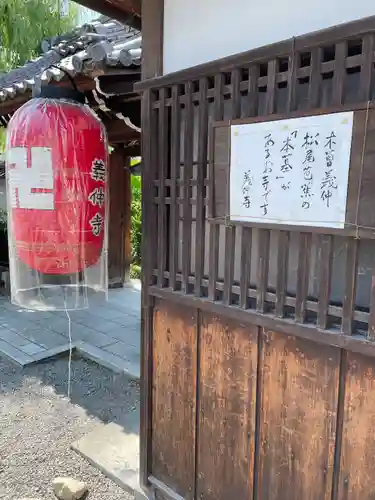 義仲寺
木曽義仲
松尾芭蕉の
「本墓」が
あるお寺です
義仲寺